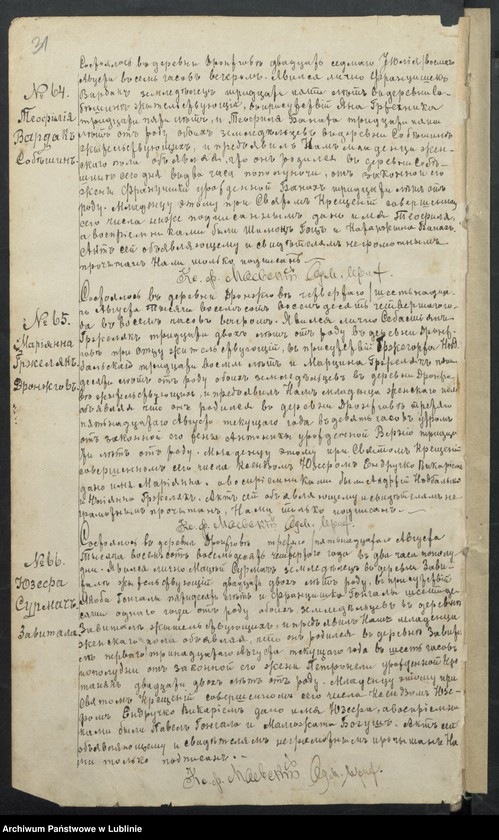 31
№ 64.
Теофилія
Вардакъ
Собѣщинъ
Состоялось въ деревни Дронжговъ двадцать седьмаго Іюлія/восьмаго
Августа въ семь часовъ вечеромъ. Явился лично Францишекъ
Вардакъ земледѣлецъ тридцати лѣтъ въ деревни Со-
бѣщинъ жительствующій, въ присутствіи Яна
тридцати лѣтъ и Теофила Банаха тридцати
лѣтъ отъ роду обоихъ земледѣльцевъ въ деревни Собѣщинъ
жительствующихъ, и предъявилъ Намъ младенца жен-
скаго пола объявляя, что онъ родился въ деревни Собѣ-
щинъ дня въ два часа пополуночи, отъ законной его
жены Францишки урожденной Банахъ тридцати лѣтъ отъ
роду. Младенцу этому при Святомъ Крещеніи совершенномъ
сего числа ниже подписаннымъ, дано имя Теофиля,
а воспріемниками были Шимонъ Гоцъ и Катаржина Банахъ.
Актъ сей объявляющему и свидѣтелямъ неграмотнымъ
прочитанъ Нами только подписанъ.
Кс. Ф. Маевскій Адм. пар.
№ 65.
Маріянна
Гржелякъ
Дронжговъ
Состоялось въ деревни Дронжговъ четвертаго/шестнадца-
го Августа тысяча восемьсотъ восемьдесятъ четвертаго го-
да въ восемь часовъ вечеромъ. Явился лично Себастіянъ
Гржелякъ тридцати двухъ лѣтъ отъ роду въ деревни Дронж-
говъ при отцу жительствующій, въ присутствіи
тридцати восьми лѣтъ и Марцина Гржеляка
лѣтъ отъ роду обоихъ земледѣльцевъ въ деревни Дронжго-
въ жительствующихъ, и предъявилъ Намъ младенца женскаго пола
объявляя что онъ родился въ деревни Дронжговъ третьяго/
пятнадцатаго Августа текущаго года въ девять часовъ утромъ
отъ законной его жены Антонины урожденной
лѣтъ отъ роду. Младенцу этому при Святомъ Крещеніи
совершенномъ сего числа Ксендзомъ Юзефомъ Ендручко Викаріемъ
дано имя Маріянна, а воспріемниками были Андрей
и Юліянна Гржелякъ. Актъ сей объявляющему и свидѣтелямъ не-
грамотнымъ прочитанъ, Нами только подписанъ.
Кс. Ф. Маевскій Адм. пар.
№ 66.
Юзефа
Сурмачъ
Завитала
Состоялось въ деревни Дронжговъ третьяго/пятнадцатаго Августа
тысяча восемьсотъ восемьдесятъ четвертаго года въ два часа пополу-
дни. Явился лично Мацей Сурмачъ земледѣлецъ въ деревни Зави-
тала жительствующій двадцати двухъ лѣтъ роду, въ присутствіи
Якова Гонгалы пятидесяти лѣтъ и Францишка Гонгалы шестиде-
сяти одного года отъ роду обоихъ земледѣльцевъ въ деревни
Завитала жительствующихъ, и предъявилъ Намъ младенца
женскаго пола объявляя, что онъ родился въ деревни Завита-
ла перваго/тринадцатаго Августа текущаго года въ шесть часовъ
пополудни отъ законной его жены Петронели урожденной
двадцати двухъ лѣтъ отъ роду. Младенцу этому при
Святомъ Крещеніи совершенномъ сего числа Ксендзомъ Юзе-
фомъ Ендручко Викаріемъ дано имя Юзефа, а воспріемни-
ками были Павелъ Гонгала и Малгожата Богушъ. Актъ сей
объявляющему и свидѣтелямъ неграмотнымъ прочитанъ На-
ми только подписанъ.
Кс. Ф. Маевскій Адм. пар.
Archiwum Państwowe w Lublinie